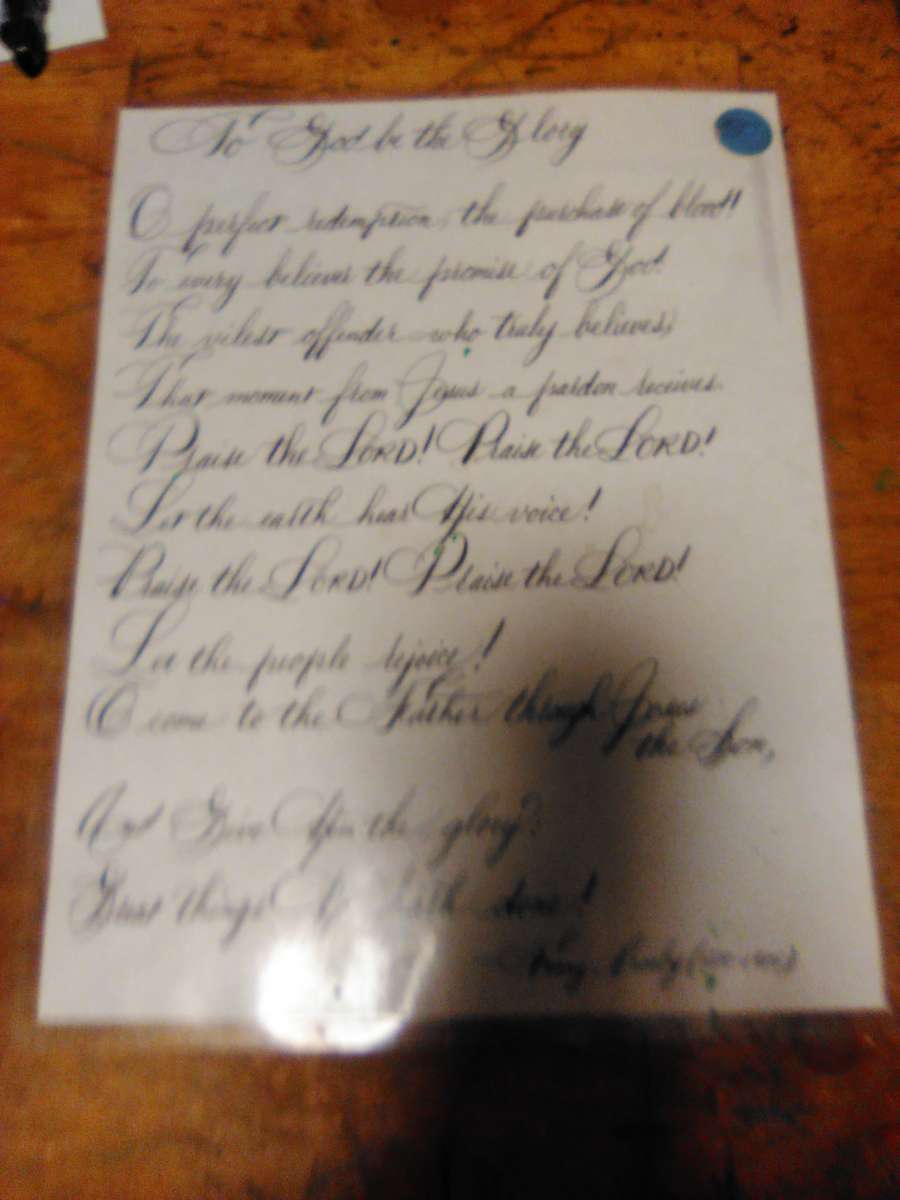 To God be the Glory
O perfect redemption, the purchase of blood!
To every believer the promise of God.
The vilest offender who truly believes,
That moment from Jesus a pardon receives.
Praise the LORD! Praise the LORD!
Let the earth hear His voice!
Praise the LORD! Praise the LORD!
Let the people rejoice!
O come to the Father through Jesus
the Son,
And Give Him the glory!
Great things He hath done!